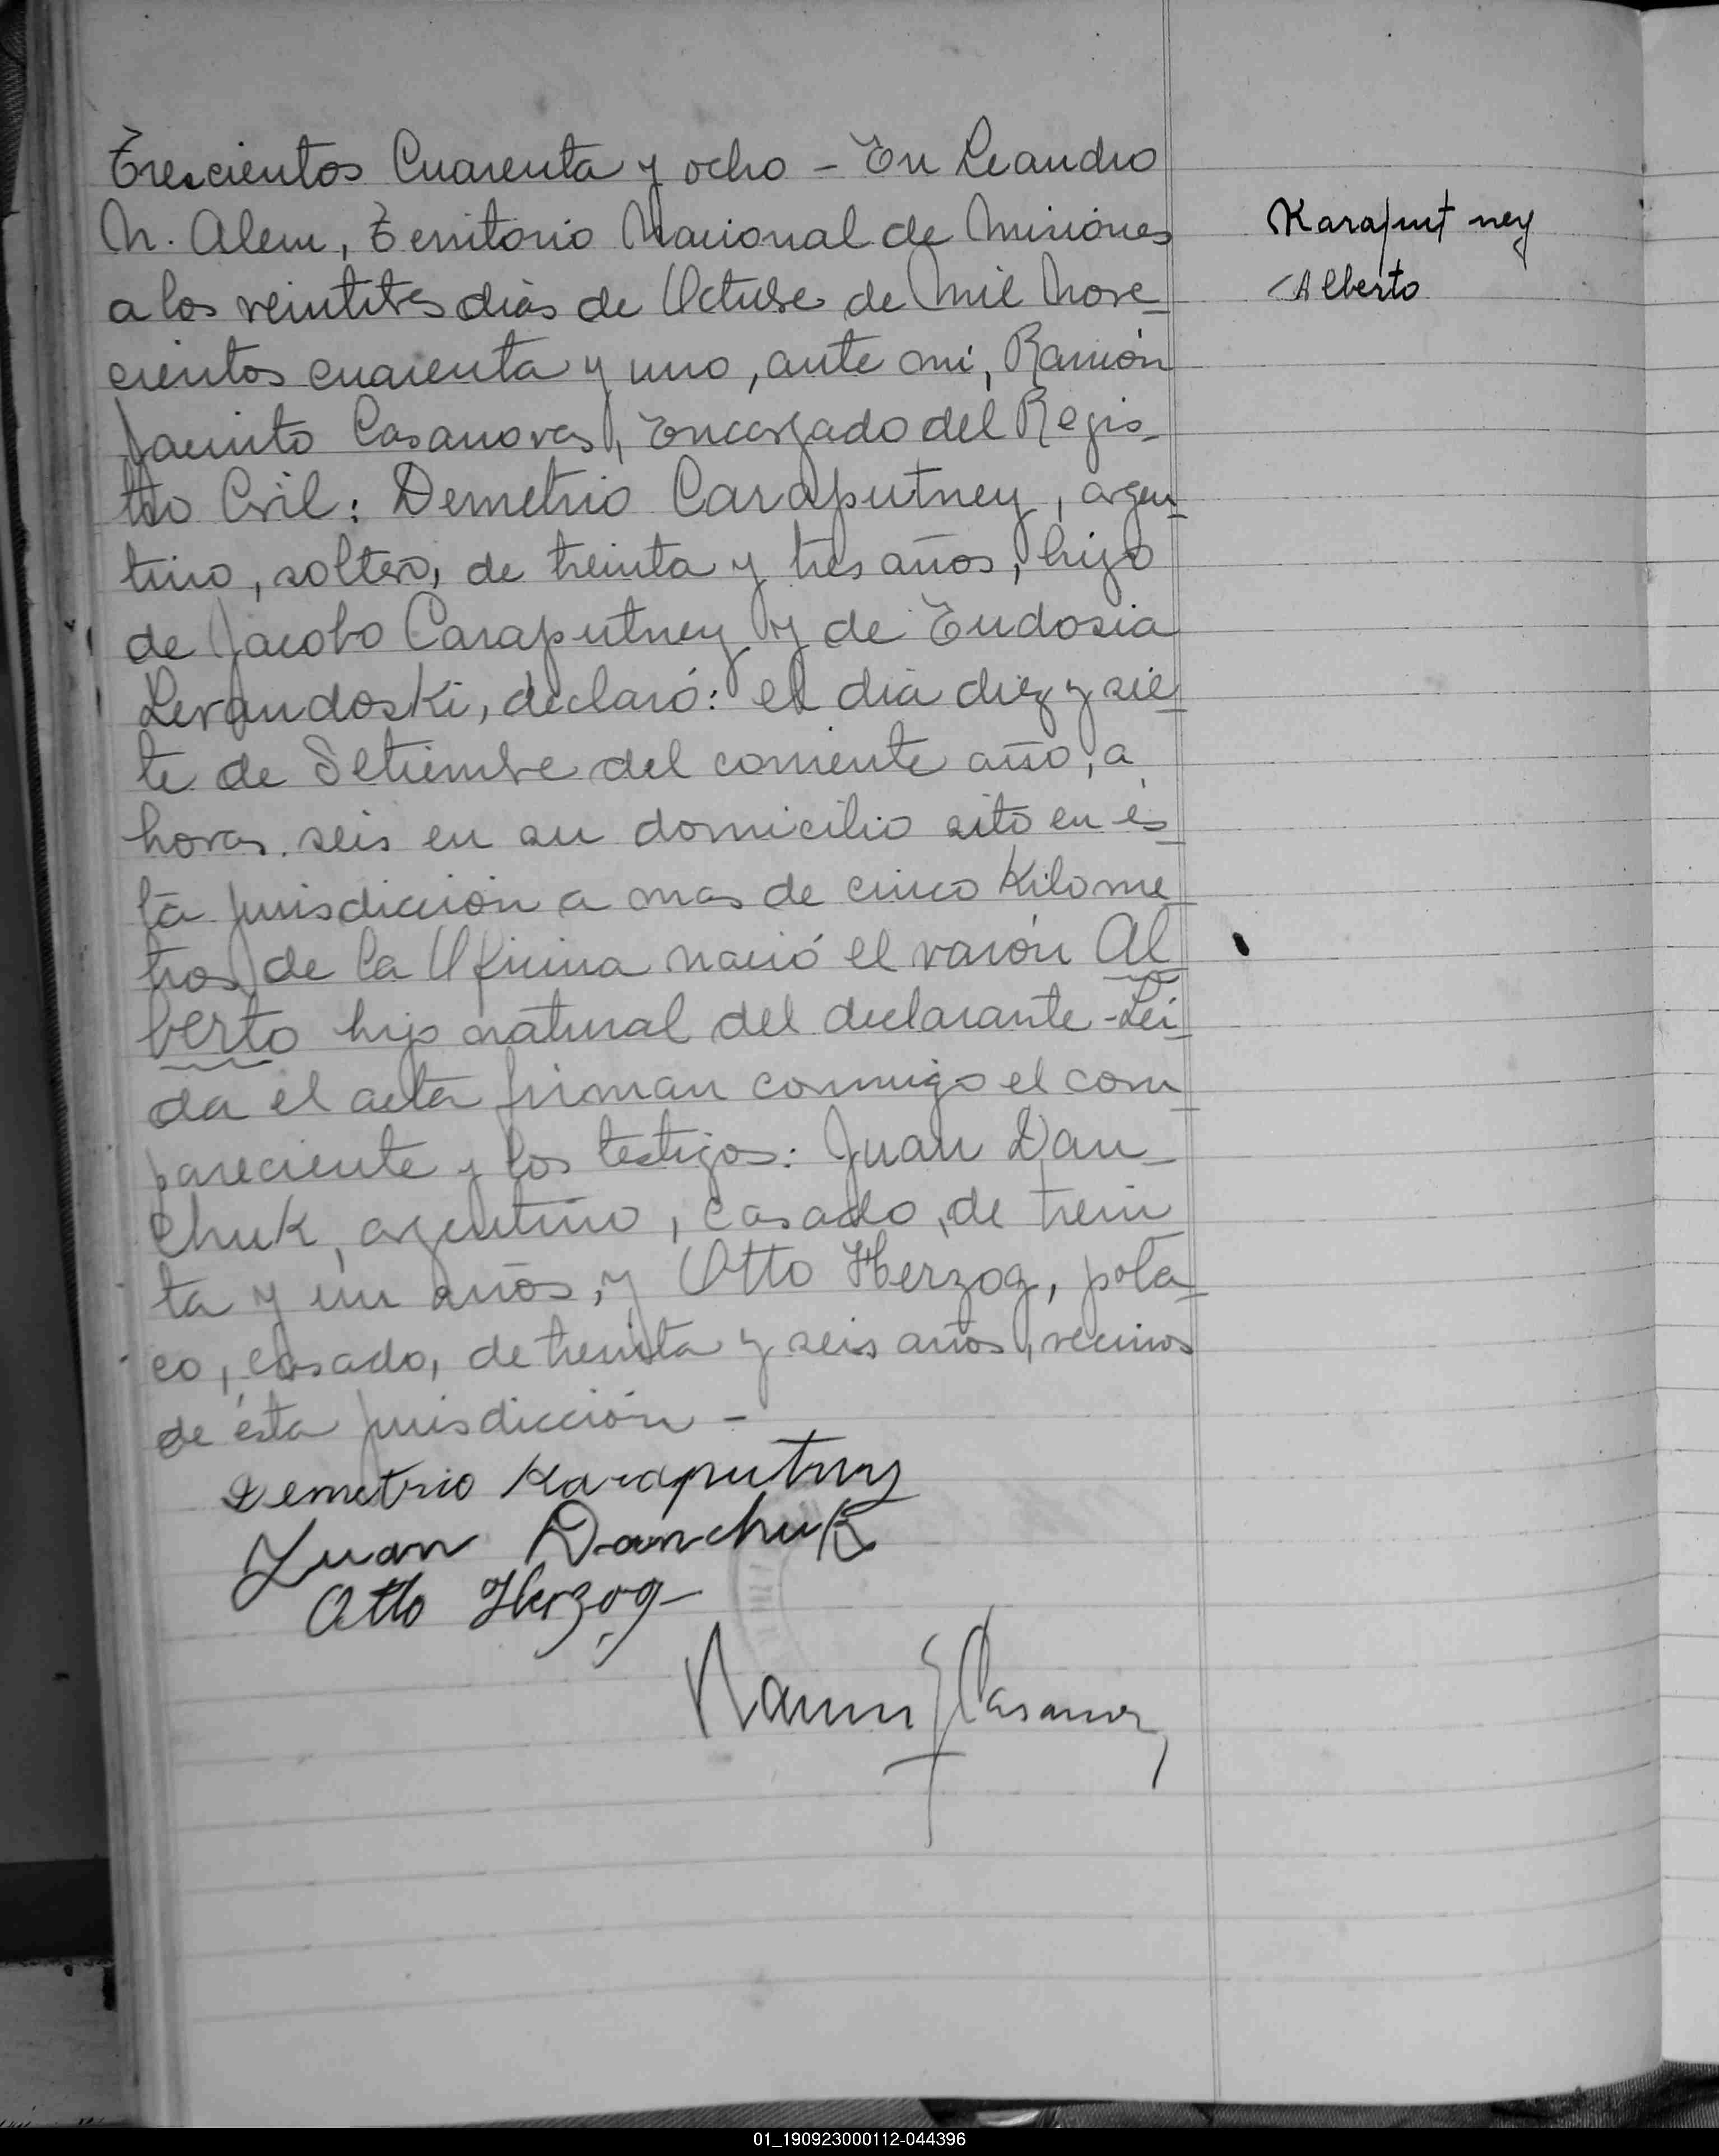 Trescientos Cuarenta y ocho - En Leandro
N. Alem, Territorio Nacional de Misiones
a los veintitres dias de Octubre de Mil Nove-
cientos cuarenta y uno, ante mi, Ramón
Jacinto Casanovas, Encargado del Regis-
tro Civil: Demetrio Caraputney, argen-
tino, soltero, de treinta y tres años, hijo
de Jacobo Caraputney y de Eudosia
Levandoski, declaró: el dia diez y sie-
te de Setiembre del corriente año, a
horas seis en su domicilio sito en és-
ta jurisdicción a mas de cinco Kilome-
tros de la Oficina nació el varón Al-
berto hijo natural del declarante - Lei-
da el acta firman conmigo el com-
pareciente y los testigos: Juan Dan-
chuk, argentino, casado, de trein
ta y un años, y Otto Herzog, pola-
co, casado, de treinta y seis años, vecinos
de ésta jurisdicción -
Demetrio Karaputny
Juan Danchuk
Otto Herzog
Ramon J Casanova
Karaput ney
Alberto
01_190923000112-044396